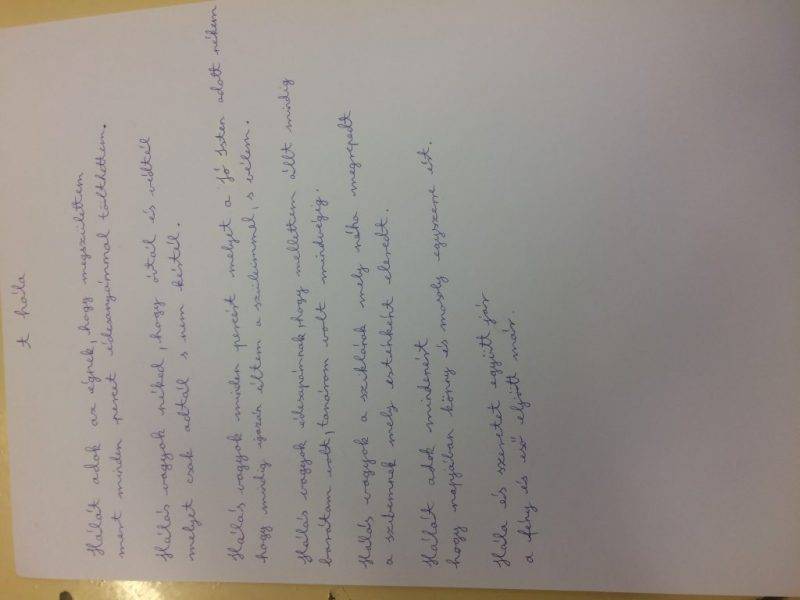 A hála
Hálát adok az égnek, hogy megszülettem
mert minden percet édesanyámmal tölthettem.
Hálás vagyok néked, hogy óvtál és védtél
melyet csak adtál s nem kértél.
Hálás vagyok minden percért melyet a Jó Isten adott nékem
hogy mindig igazán éltem a szüleimmel, s vélem.
Hálás vagyok édesapámnak, hogy mellettem állt mindig
barátom volt, tanárom volt mindvégig.
Hálás vagyok a sziklának mely néha megrepedt
a szívemnek mely esténként eleredt.
Hálát adok mindenért
hogy napjában könny és mosoly egyszerre ért.
Hála és szeretet együtt jár
a fény és eső eljött már.